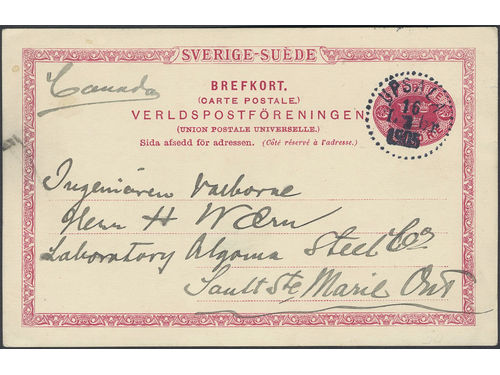 SVERIGE-SUÈDE
Canada
BREFKORT.
(CARTE POSTALE.)
VERLDSPOSTFÖRENINGEN
(UNION POSTALE UNIVERSELLE.)
Sida afsedd för adressen. (Côté réservé à l'adresse.)
UPSALA
16
1905
Ingeniören Valborne
Herr H Wærn
Laboratory Algoma Steel Co
Sault Ste Marie Ont